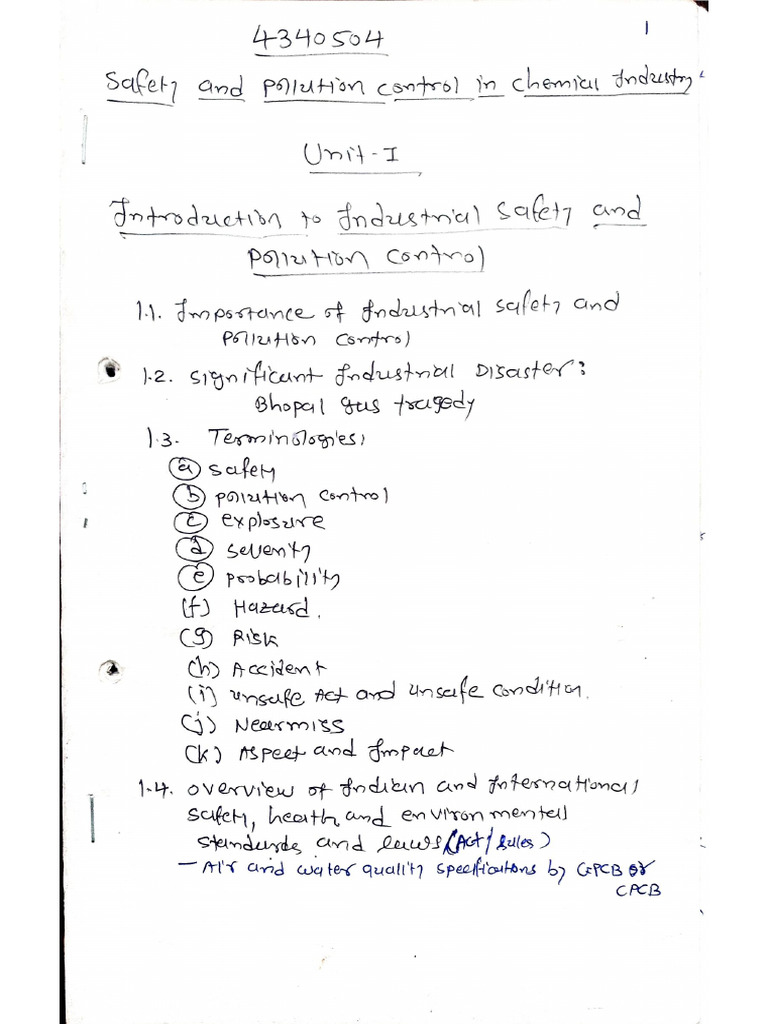 1
4340504
Safety and Pollution control in Chemical Industry
Unit-I
Introduction to Industrial Safety and
Pollution Control
1.1. Importance of Industrial safety and
Pollution control
1.2. Significant Industrial Disaster:
Bhopal gas tragedy
1.3. Terminologies,
(a) Safety
(b) pollution control
(c) explosure
(d) severity
(e) probability
(f) Hazard.
(g) Risk
(h) Accident
(i) unsafe Act and unsafe condition.
(j) Nearmiss
(k) Aspect and Impact
1.4. overview of Indian and International
safety, health and environmental
standards and laws (Act/Rules)
- Air and water quality specifications by GPCB or
CPCB